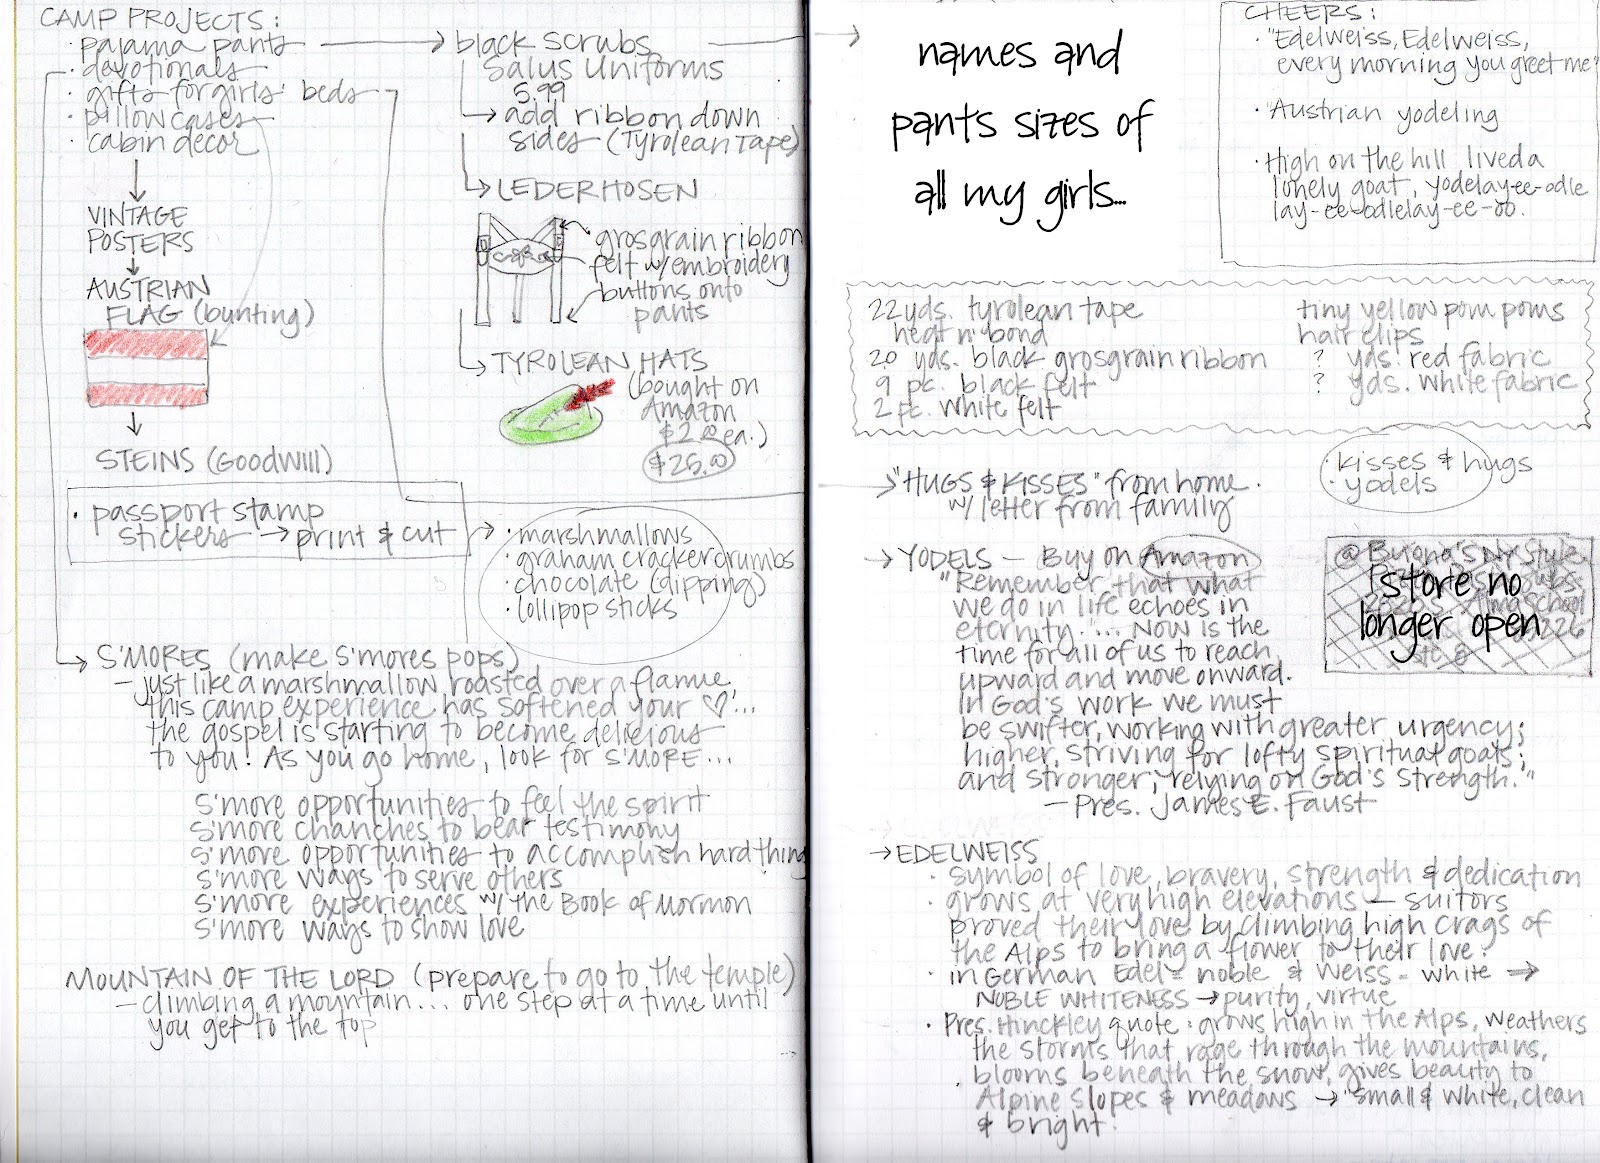 CAMP PROJECTS:
· pajama pants
· devotionals
· gifts for girls' beds
· pillow cases
· cabin decor
VINTAGE
POSTERS
AUSTRIAN
FLAG (bunting)
STEINS (GOODWILL)
· passport stamp
stickers → print & cut
black scrubs
Salus Uniforms
5.99
→ add ribbon down
sides (Tyrolean Tape)
→ LEDERHOSEN
grosgrain ribbon
felt w/ embroidery
buttons onto
pants
→ TYROLEAN HATS
(bought on
Amazon
$2.00 ea.)
$25.00
· marshmallows
· graham cracker crumbs
· chocolate (dipping)
· lollipop sticks
→ S'MORES (make S'mores pops)
– just like a marshmallow roasted over a flame,
this camp experience has softened your ♡...
the gospel is starting to become delicious
to you! As you go home, look for S'MORE...
S'more opportunities to feel the spirit
S'more chanches to bear testimony
S'more opportunities to accomplish hard things
S'more ways to serve others
S'more experiences w/ the Book of Mormon
S'more ways to show love
MOUNTAIN OF THE LORD (prepare to go to the temple)
– climbing a mountain... one step at a time until
you get to the top
names and
pants sizes of
all my girls...
CHEERS:
· "Edelweiss, Edelweiss,
every morning you greet me"
· "Austrian yodeling
· High on the hill lived a
lonely goat, yodelay-ee-odle
lay-ee-odlelay-ee-oo.
22 yds. tyrolean tape
heat n' bond
20 yds. black grosgrain ribbon
9 pc. black felt
2 pc. white felt
tiny yellow pom poms
hair clips
? yds. red fabric
? yds. white fabric
→ "HUGS & KISSES" from home.
w/ letter from family
· kisses & hugs
· yodels
→ YODELS – Buy on Amazon
"Remember that what
we do in life echoes in
eternity."... Now is the
time for all of us to reach
upward and move onward.
In God's work we must
be swifter, working with greater urgency;
higher, striving for lofty spiritual goals;
and stronger, relying on God's strength."
– Pres. James E. Faust
@ Buona's NY Style
store no
longer open
→ EDELWEISS
· symbol of love, bravery, strength & dedication
· grows at very high elevations – suitors
proved their love by climbing high crags of
the Alps to bring a flower to their love.
· in German Edel = noble & Weiss = white →
NOBLE WHITENESS → purity, virtue
· Pres. Hinckley quote: grows high in the Alps, weathers
the storms that rage through the mountains,
blooms beneath the snow, gives beauty to
Alpine slopes & meadows → "small & white, clean
& bright.